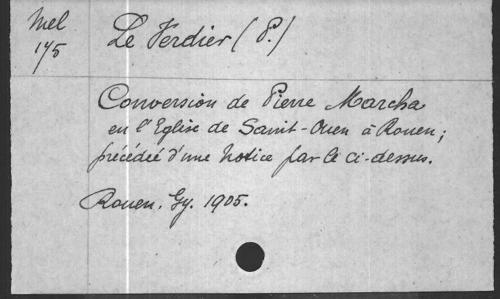 Mel
175
Le Verdier (P.)
Conversion de Pierre Marcha
en l'Eglise de Saint-Ouen à Rouen;
précédée d'une notice par le ci-dessus.
Rouen. Gy. 1905.